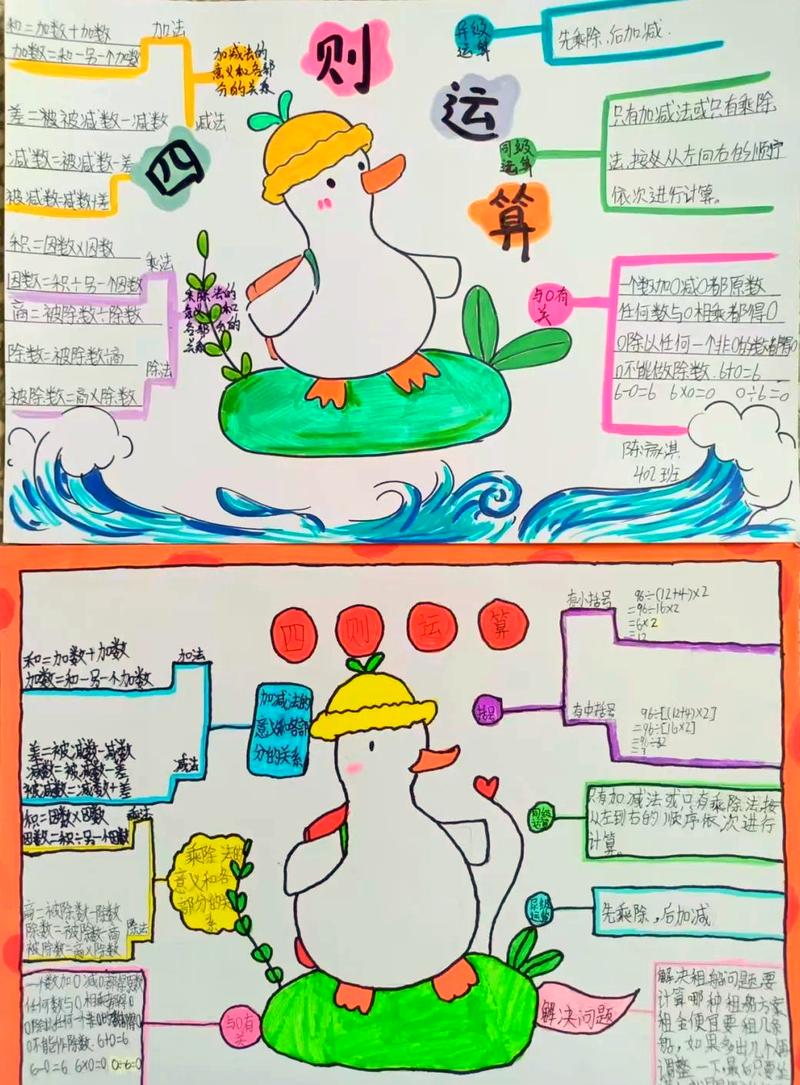 四则运算
和=加数+加数
加数=和-另一个加数
加法
加减法的
意义和各部
分的关系
差=被被减数-减数
减法
减数=被减数-差
被减数=减数+差
积=因数×因数
乘法
因数=积÷另一个因数
商=被除数÷除数
乘除法的
意义和
各部分的
关系
除数=被除数÷商
除法
被除数=商×除数
异级
运算
先乘除,后加减.
同级
运算
只有加减法或只有乘除
法,按从左向右的顺序
依次进行计算。
与0有
关
一个数加0减0都原数
任何数与0相乘都得0
0除以任何一个非0的数都得0
0不能做除数.6+0=6
6-0=6 6×0=0 0÷6=0
402班
四则运算
和=加数+加数
加数=和-另一个加数
加法
加减法的
意义和各部
分的关系
差=被减数-减数
减数=被减数-差
减法
被减数=减数+差
积=因数×因数
乘法
因数=积÷另一个因数
乘除法的
意义和各
部分的关
系
商=被除数÷除数
除数=被除数÷商
除法
被除数=商×除数
一个数加0减0都得原数
任何数与0相乘都得0
0不能作除数.6+0=6
6-0=6 6×0=0 0÷6=0
与0有
关
有小括号
96÷(12+4)×2
=96÷16×2
=6×2
=12
括号
有中括号
96÷[(12+4)×2]
=96÷[16×2]
=96÷32
=3
同级
运算
只有加减法或只有乘除法,按
从左到右的顺序依次进行
计算。
异级
运算
先乘除,后加减
解决问题
解决租船问题,要
计算哪种租船方案